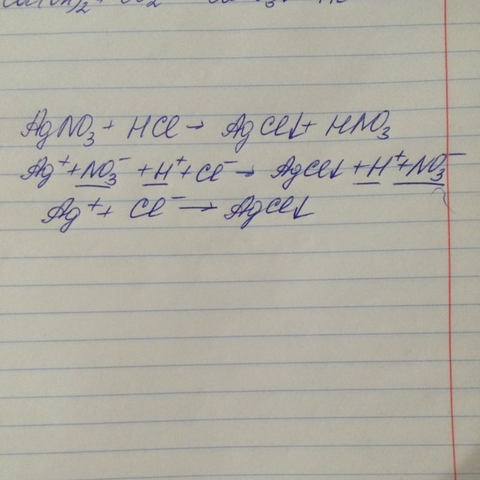 AgNO₃ + HCl → AgCl↓ + HNO₃
Ag⁺ + NO₃⁻ + H⁺ + Cl⁻ → AgCl↓ + H⁺ + NO₃⁻
Ag⁺ + Cl⁻ → AgCl↓